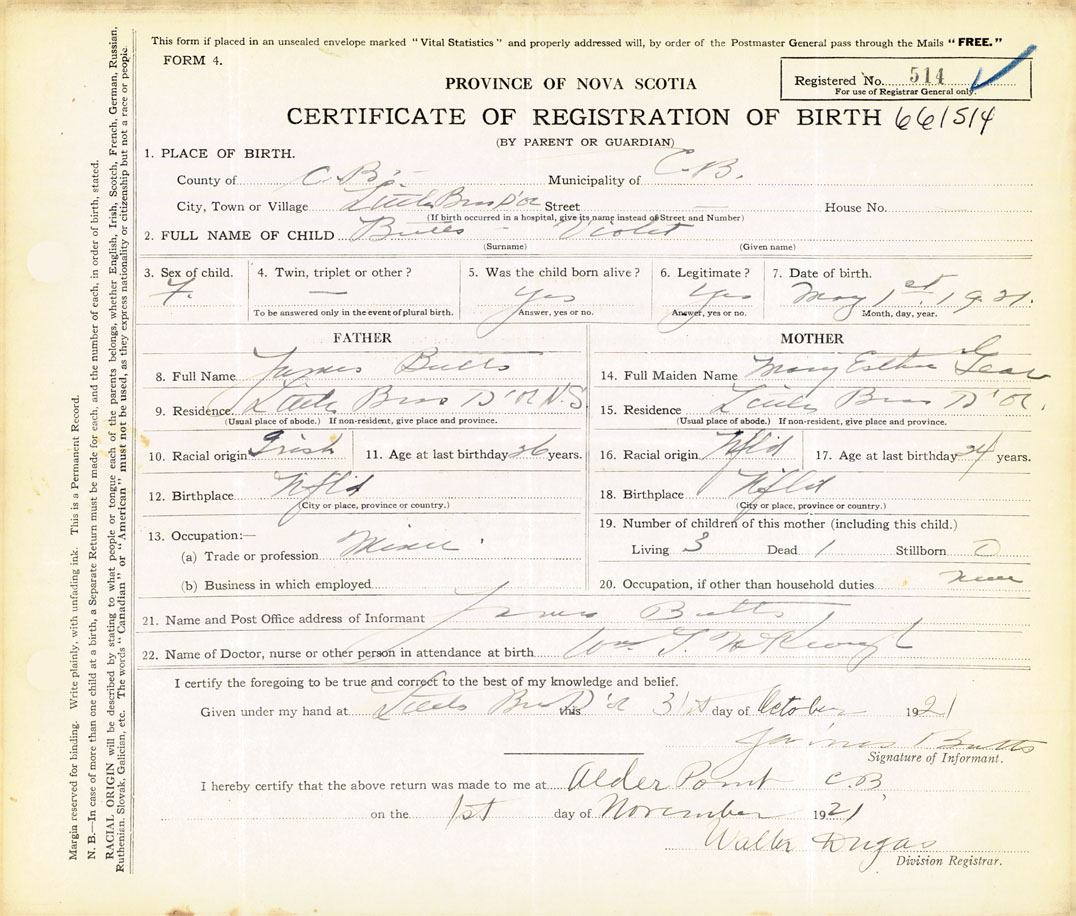 This form if placed in an unsealed envelope marked "Vital Statistics" and properly addressed will, by order of the Postmaster General pass through the Mails "FREE."
FORM 4.
Registered No. 514
For use of Registrar General only.
PROVINCE OF NOVA SCOTIA
CERTIFICATE OF REGISTRATION OF BIRTH 661514
(BY PARENT OR GUARDIAN)
1. PLACE OF BIRTH.
County of C.B. Municipality of C.B.
City, Town or Village Little Bras D'or Street — House No.
(If birth occurred in a hospital, give its name instead of Street and Number)
2. FULL NAME OF CHILD Butts - Violet
(Surname) (Given name)
3. Sex of child. 4. Twin, triplet or other? 5. Was the child born alive? 6. Legitimate? 7. Date of birth.
F. — Yes Yes May 1st, 1921.
To be answered only in the event of plural birth. Answer, yes or no. Answer, yes or no. Month, day, year.
FATHER
8. Full Name James Butts
9. Residence Little Bras D'or N.S.
(Usual place of abode.) If non-resident, give place and province.
10. Racial origin Irish 11. Age at last birthday 26 years.
12. Birthplace Nfld
(City or place, province or country.)
13. Occupation:—
(a) Trade or profession Miner
(b) Business in which employed
MOTHER
14. Full Maiden Name Mary Esther
15. Residence Little Bras D'or.
(Usual place of abode.) If non-resident, give place and province.
16. Racial origin Nfld 17. Age at last birthday 24 years.
18. Birthplace Nfld
(City or place, province or country.)
19. Number of children of this mother (including this child.)
Living 3 Dead 1 Stillborn 0
20. Occupation, if other than household duties
21. Name and Post Office address of Informant James Butts
22. Name of Doctor, nurse or other person in attendance at birth Wm.
I certify the foregoing to be true and correct to the best of my knowledge and belief.
Given under my hand at Little Bras D'or this 31st day of October 1921
James Butts
Signature of Informant.
I hereby certify that the above return was made to me at Alder Point C.B.
on the 1st day of November 1921
Walter Dugas
Division Registrar.
Margin reserved for binding. Write plainly, with unfading ink. This is a Permanent Record.
N. B.—In case of more than one child at a birth, a Separate Return must be made for each, and the number of each, in order of birth, stated.
RACIAL ORIGIN will be described by stating to what people or tongue each of the parents belongs, whether English, Irish, Scotch, French, German, Russian,
Ruthenian, Slovak, Galician, etc. The words "Canadian" or "American" must not be used, as they express nationality or citizenship but not a race or people.